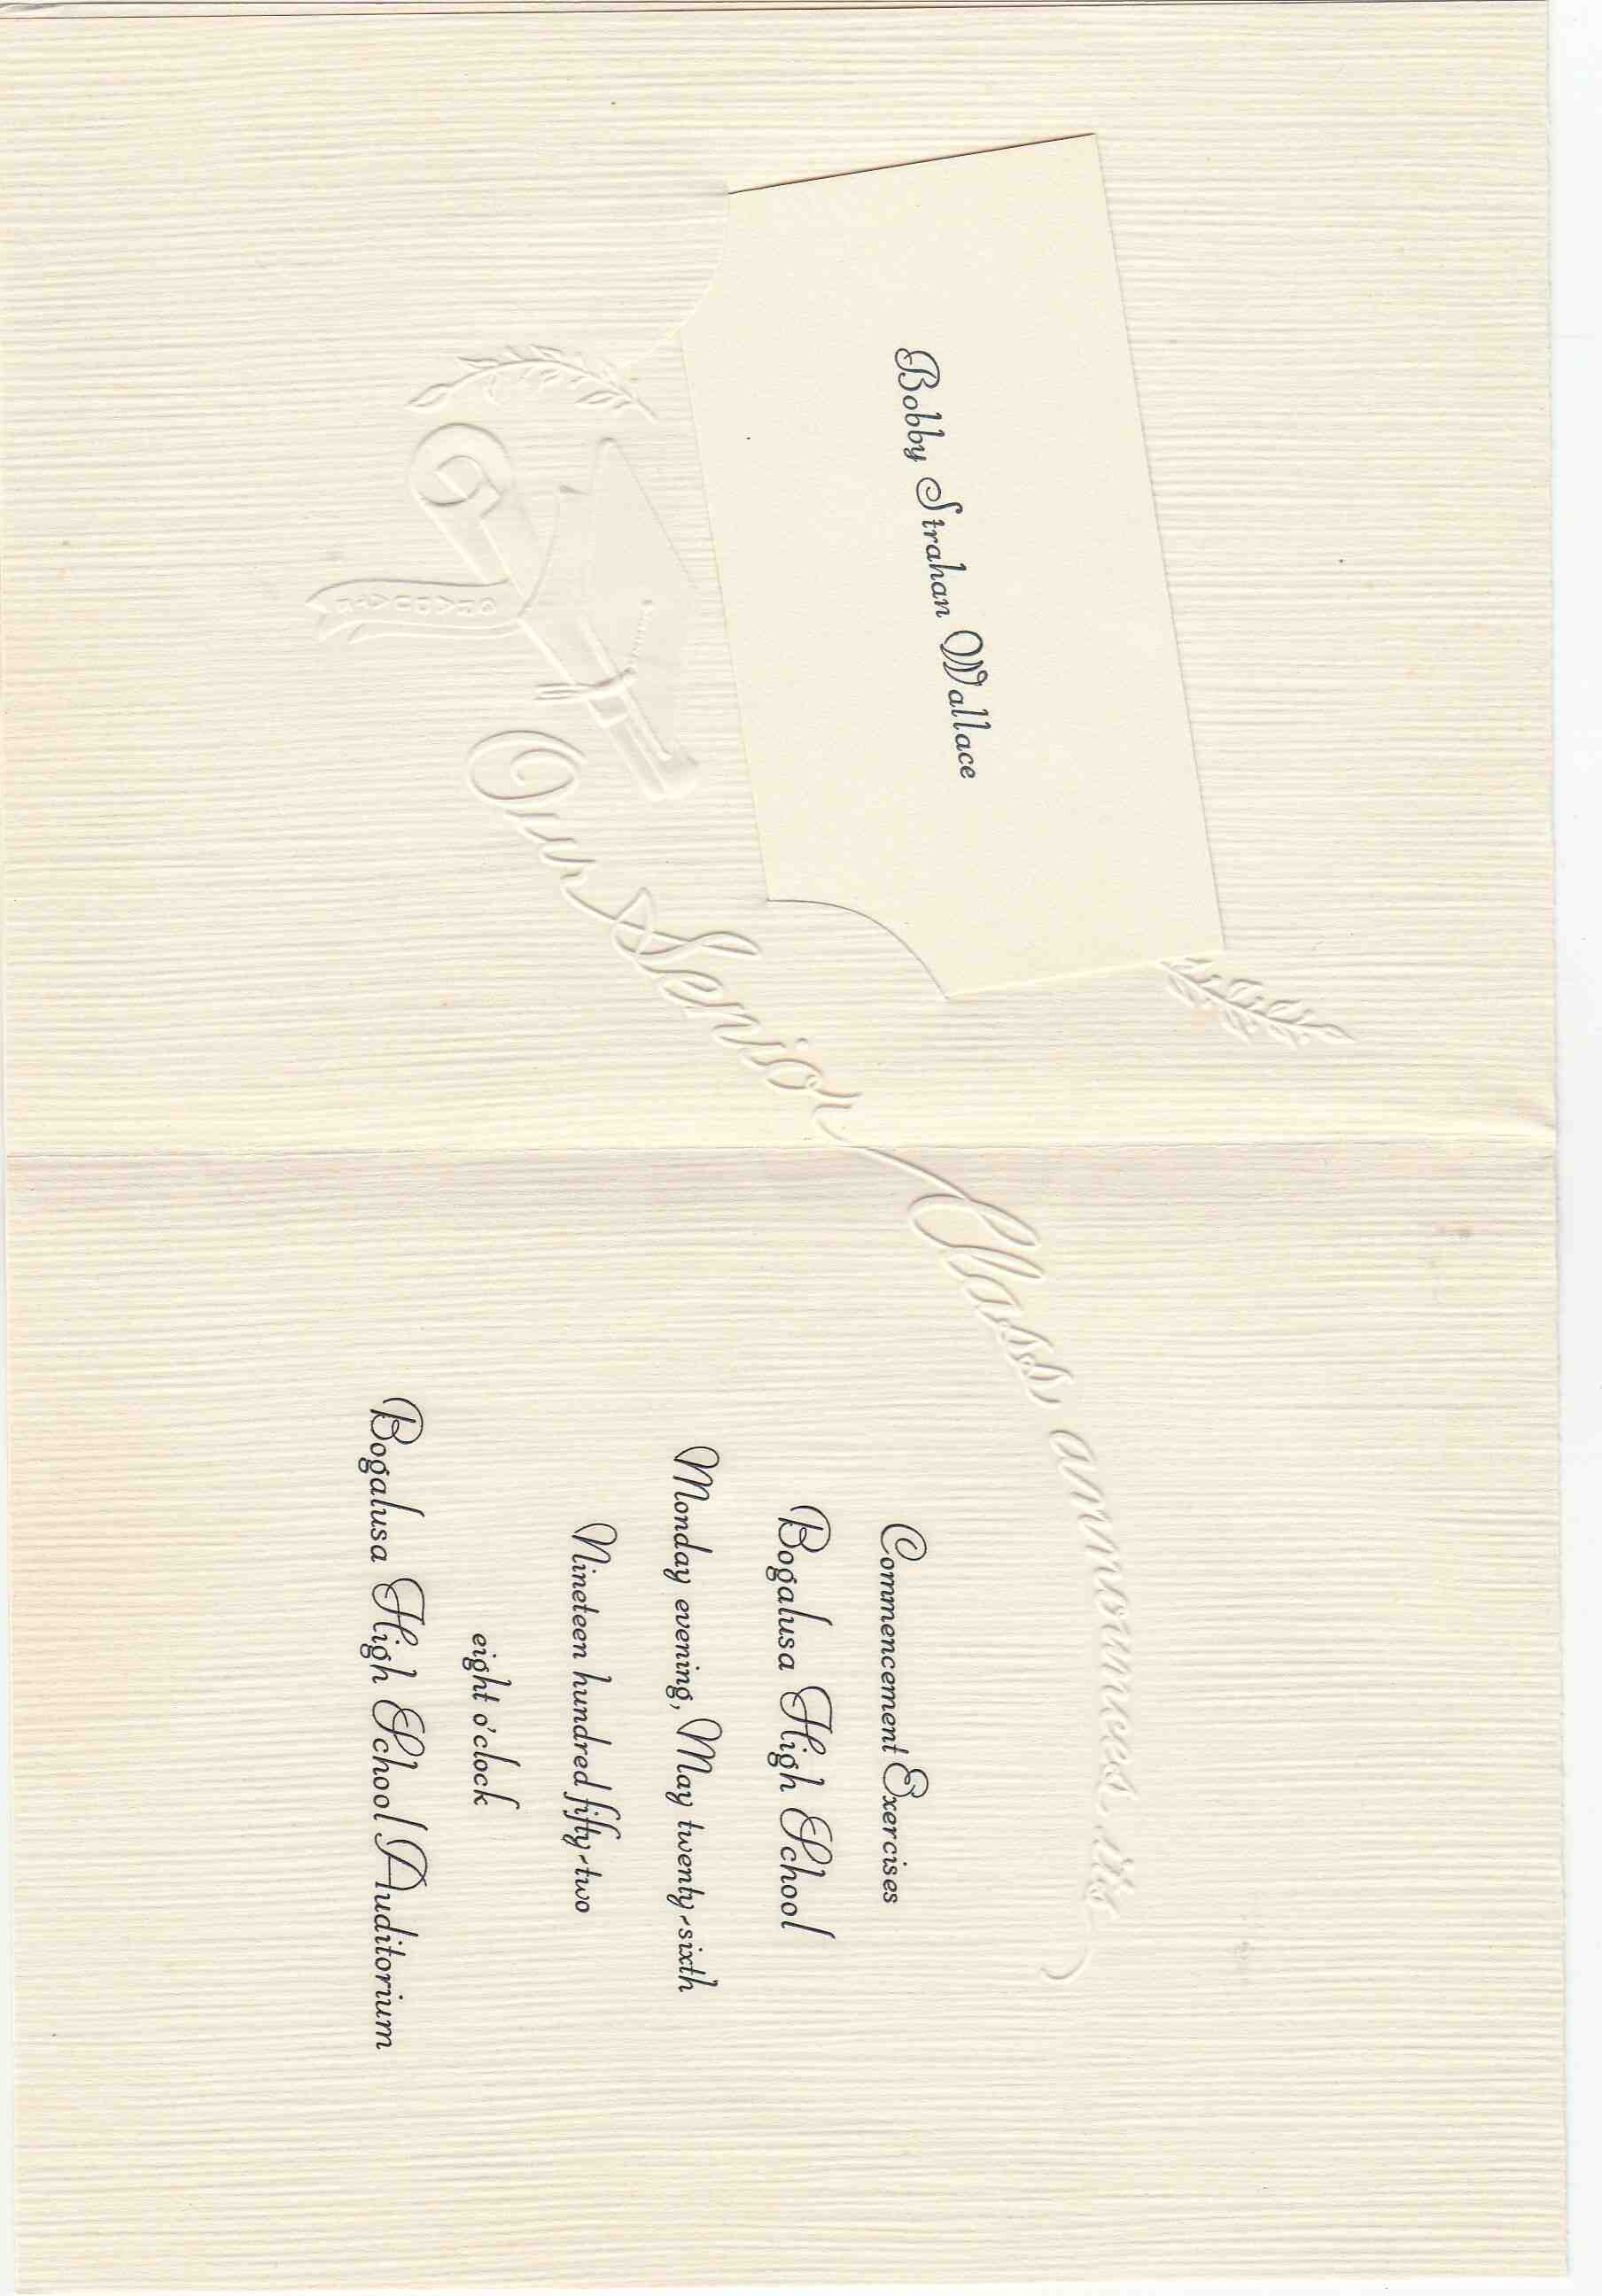 Bobby Strahan Wallace
Our Senior Class announces its
Commencement Exercises
Bogalusa High School
Monday evening, May twenty-sixth
Nineteen hundred fifty-two
eight o'clock
Bogalusa High School Auditorium